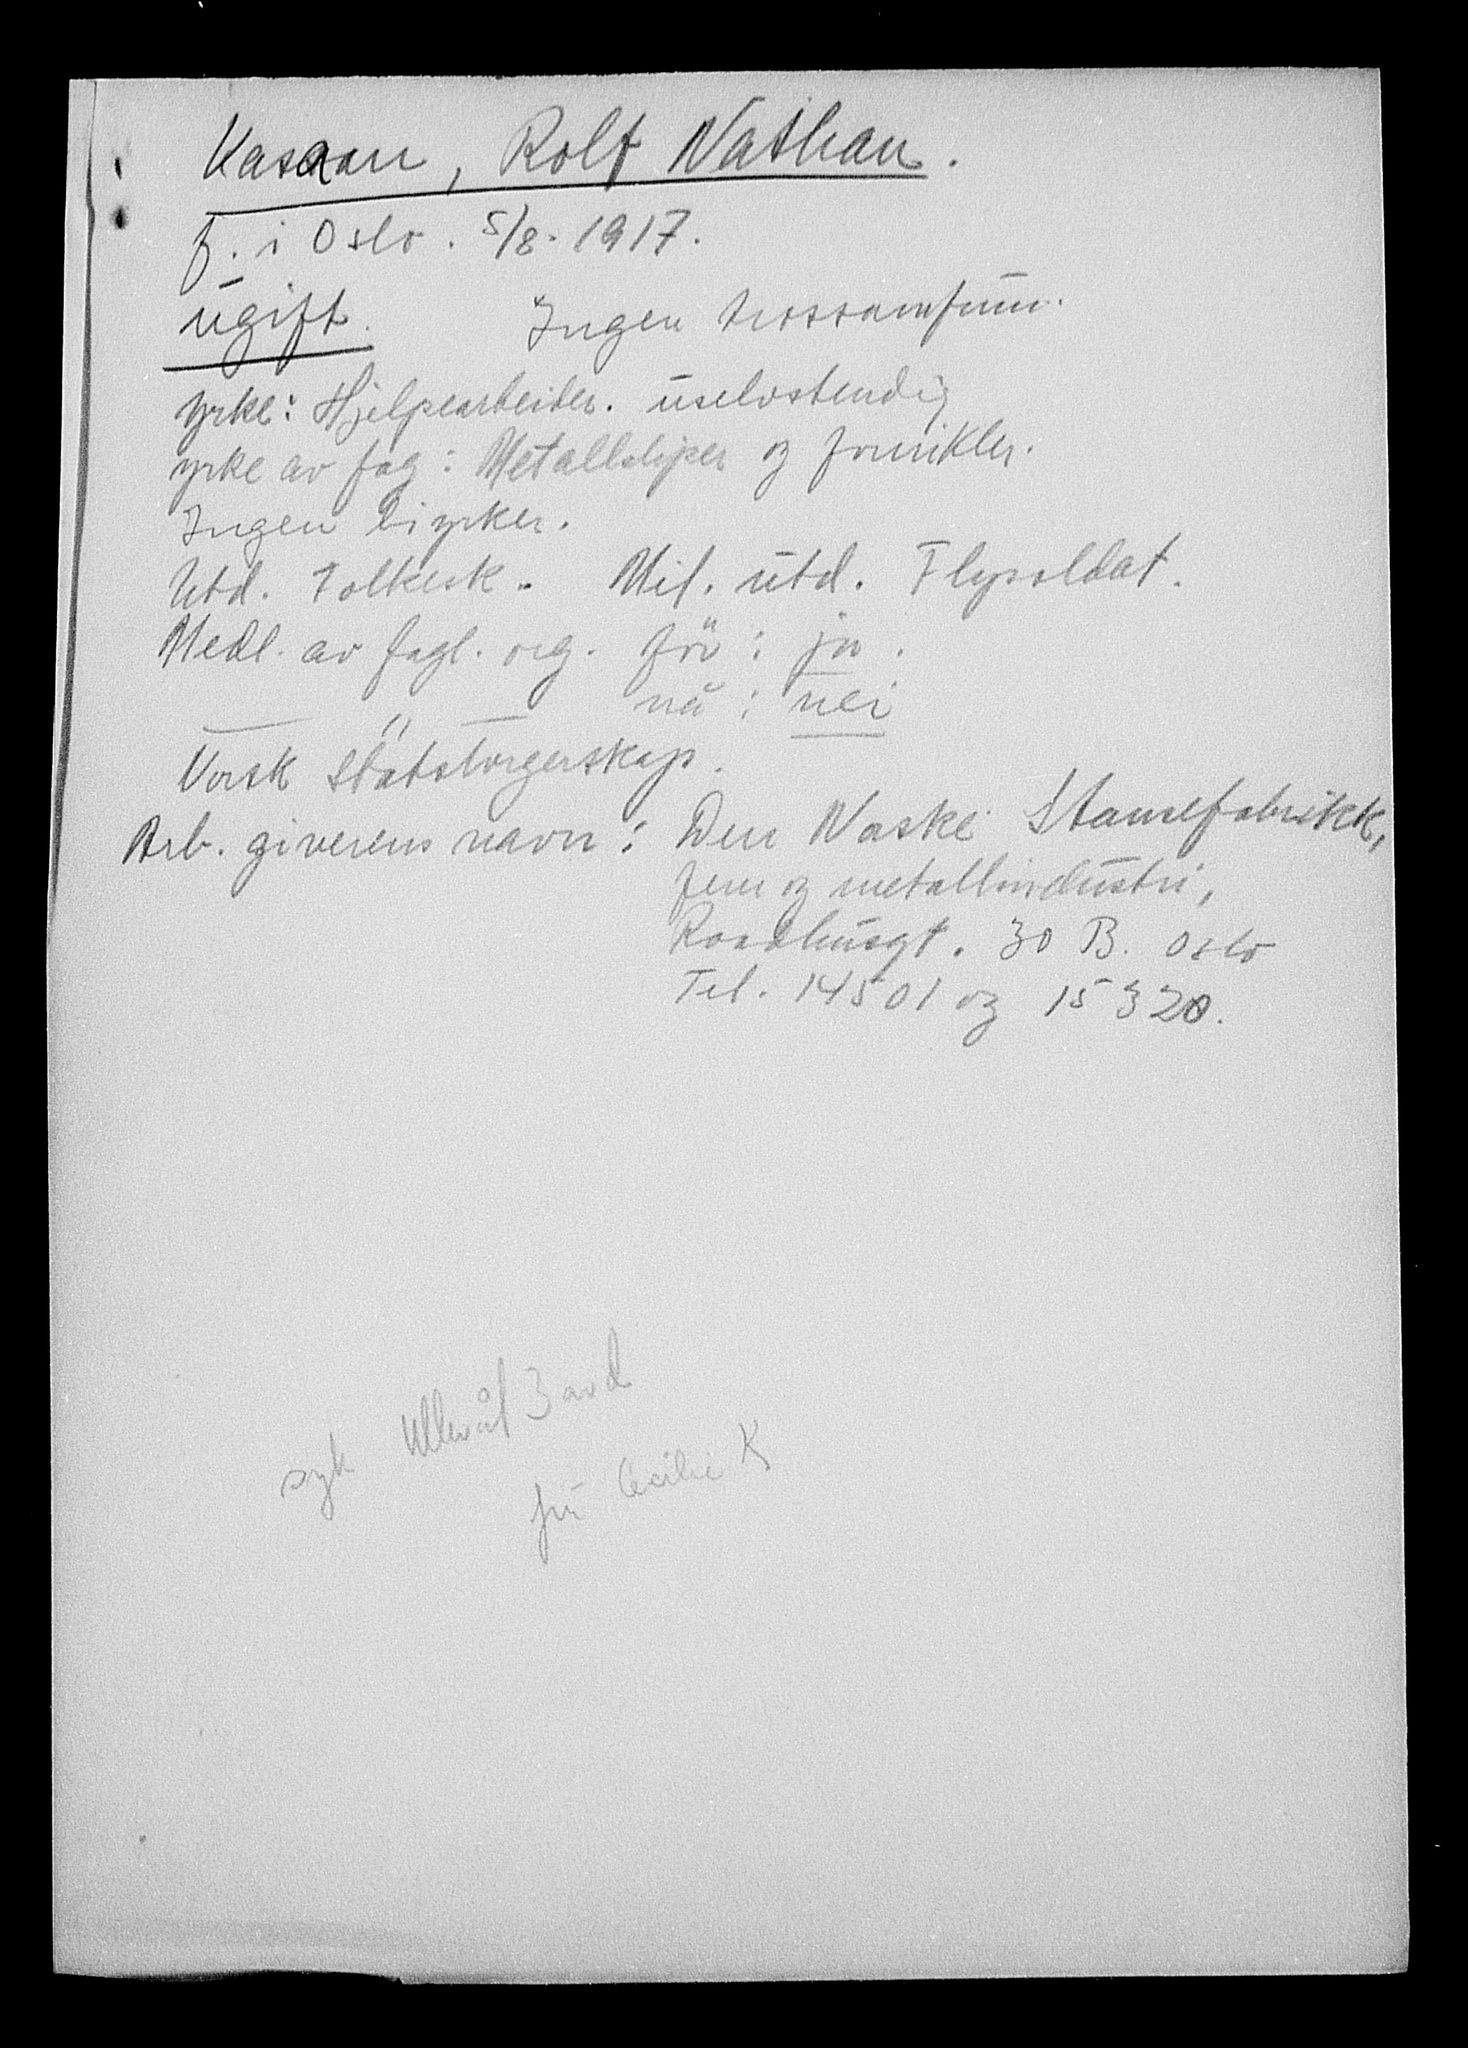 Kasaan, Rolf Nathan.
f. i Oslo. 5/8. 1917.
ugift. Ingen trossamfunn.
yrke: Hjelpearbeider. uselvstendig
yrke av fag: Metallsliper og fornikler.
Ingen biyrker.
Utd. Folkesk. Mil. utd. Flysoldat.
Medl. av fagl. org. før: ja.
— " — nå: nei
Norsk Statsborgerskap.
Arb. giverens navn: Den Norske Stansefabrikk,
jern og metallindustri,
Raadhusgt. 30 B. Oslo
Tel. 14501 og 15320.
syk Ullevål 3 avd
fru Cecilie K